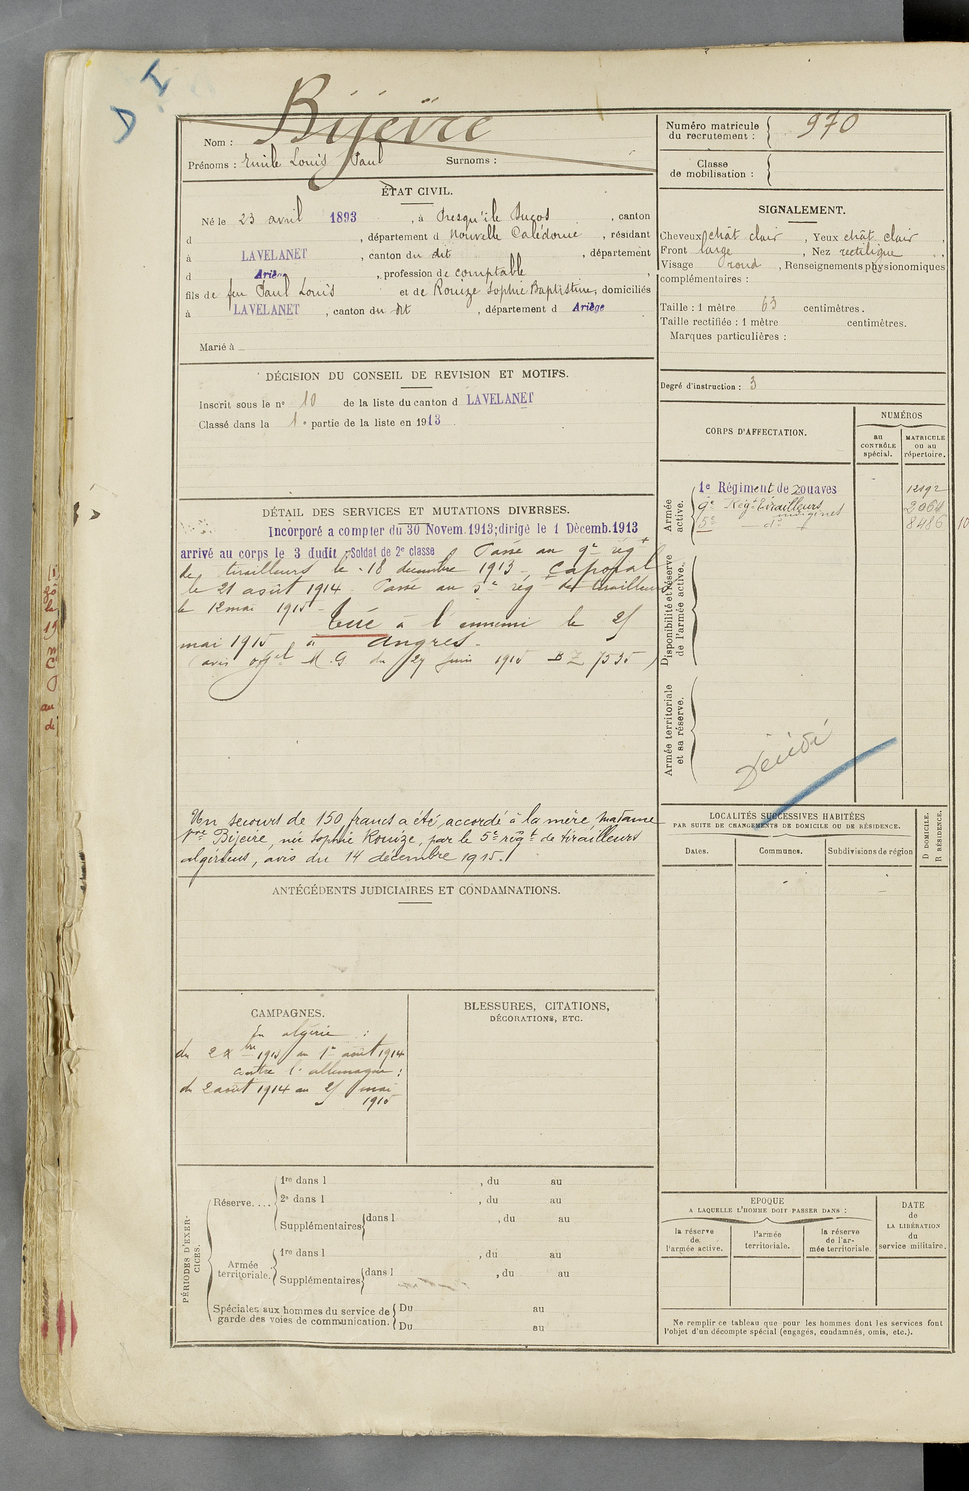 D I
Nom : Bijeïre
Prénoms : Emile Louis Paul Surnoms :
ÉTAT CIVIL.
Né le 23 avril 1893, à Presqu'ile Ducos, canton
d , département d Nouvelle Calédonie, résidant
à LAVELANET, canton du dit, département
d Ariège, profession de comptable
fils de feu Paul Louis et de Rouize Sophie Baptistine, domiciliés
à LAVELANET, canton du dit, département d Ariège
Marié à
DÉCISION DU CONSEIL DE REVISION ET MOTIFS.
Inscrit sous le nº 10 de la liste du canton d LAVELANET
Classé dans la 1e partie de la liste en 1913
DÉTAIL DES SERVICES ET MUTATIONS DIVERSES.
Incorporé a compter du 30 Novem. 1913; dirigé le 1 Décemb. 1913
arrivé au corps le 3 dudit, Soldat de 2e classe Passé au 9e régt
de tirailleurs le 18 decembre 1913 - Caporal
le 21 août 1914 - Passé au 5e régt de tirailleurs
le 12 mai 1915 -
Tué à l'ennemi le 25
mai 1915 à Angres -
(avis offel M. G du 27 juin 1915 BZ 7535)
Un secours de 150 francs a été accordé à la mère Madame
Vve Bijeire, née Sophie Rouize, par le 5e régt de tirailleurs
algériens, avis du 14 décembre 1915.
ANTÉCÉDENTS JUDICIAIRES ET CONDAMNATIONS.
CAMPAGNES.
En algérie :
du 2 Xbre 1913 au 1er août 1914
contre l'allemagne :
du 2 août 1914 au 25 mai
1915
BLESSURES, CITATIONS,
DÉCORATIONS, ETC.
PÉRIODES D'EXERCICES.
Réserve....
1re dans l , du au
2e dans l , du au
Supplémentaires dans l , du au
Armée territoriale.
1re dans l , du au
Supplémentaires dans l , du au
Spéciales aux hommes du service de
garde des voies de communication.
Du au
Du au
Numéro matricule
du recrutement : 970
Classe
de mobilisation :
SIGNALEMENT.
Cheveux chât clair, Yeux chât clair,
Front large, Nez rectiligne,
Visage rond, Renseignements physionomiques
complémentaires :
Taille : 1 mètre 63 centimètres.
Taille rectifiée : 1 mètre centimètres.
Marques particulières :
Degré d'instruction : 3
CORPS D'AFFECTATION.
NUMÉROS
au
CONTRÔLE
spécial.
MATRICULE
ou au
répertoire.
Armée
active.
1e Régiment de zouaves 12192
9e Régt tirailleurs indigènes 2064
5e - do - 8486
Disponibilité et réserve
de l'armée active.
Armée territoriale
et sa réserve.
Décédé
LOCALITÉS SUCCESSIVES HABITÉES
PAR SUITE DE CHANGEMENTS DE DOMICILE OU DE RÉSIDENCE.
D DOMICILE.
R RÉSIDENCE.
Dates.
Communes.
Subdivisions de région
EPOQUE
A LAQUELLE L'HOMME DOIT PASSER DANS :
la réserve
de
l'armée active.
l'armée
territoriale.
la réserve
de l'ar-
mée territoriale.
DATE
de
LA LIBÉRATION
du
service militaire.
Ne remplir ce tableau que pour les hommes dont les services font
l'objet d'un décompte spécial (engagés, condamnés, omis, etc.).